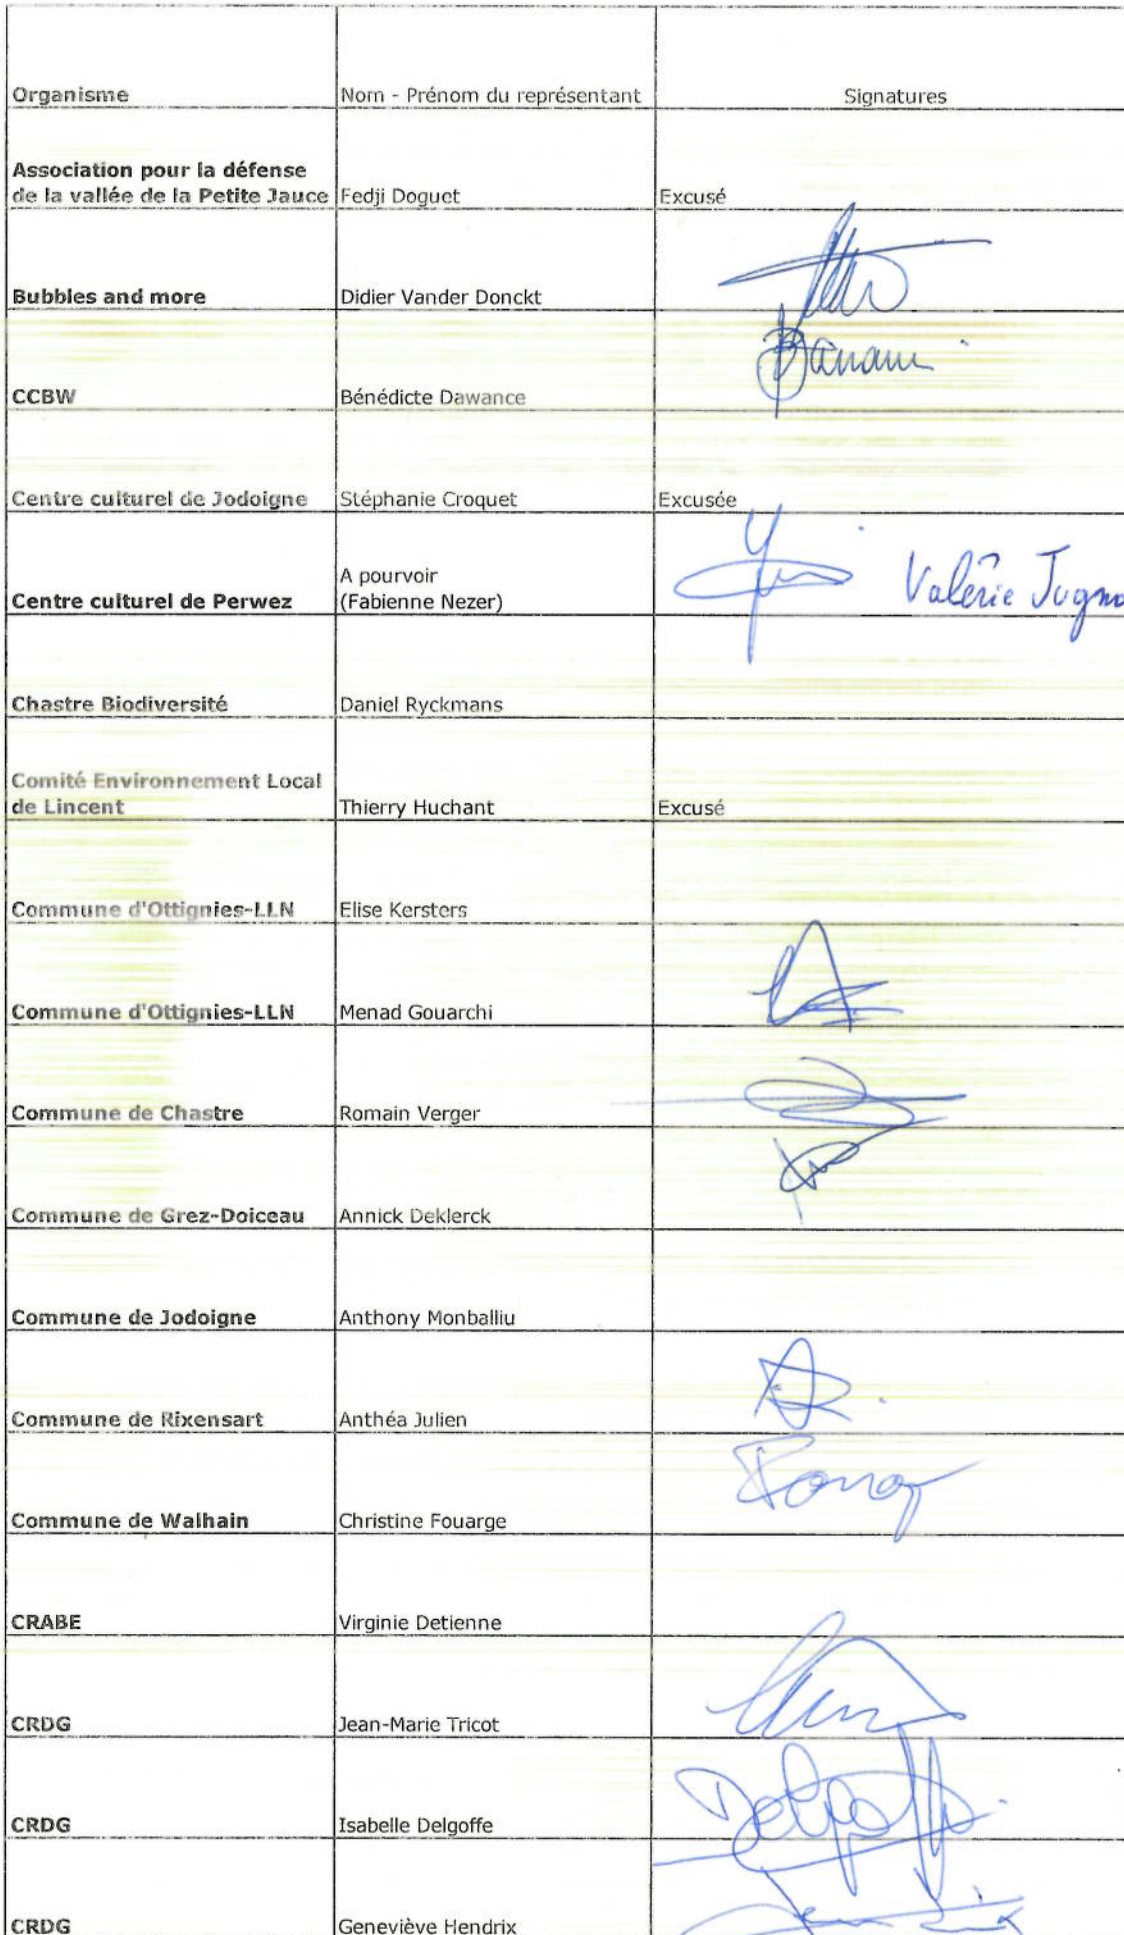 Organisme Nom - Prénom du représentant Signatures
Association pour la défense
de la vallée de la Petite Jauce Fedji Doguet Excusé
Bubbles and more Didier Vander Donckt
CCBW Bénédicte Dawance
Centre culturel de Jodoigne Stéphanie Croquet Excusée
A pourvoir
Centre culturel de Perwez (Fabienne Nezer) Valérie Jugno
Chastre Biodiversité Daniel Ryckmans
Comité Environnement Local
de Lincent Thierry Huchant Excusé
Commune d'Ottignies-LLN Elise Kersters
Commune d'Ottignies-LLN Menad Gouarchi
Commune de Chastre Romain Verger
Commune de Grez-Doiceau Annick Deklerck
Commune de Jodoigne Anthony Monballiu
Commune de Rixensart Anthéa Julien
Commune de Walhain Christine Fouarge
CRABE Virginie Detienne
CRDG Jean-Marie Tricot
CRDG Isabelle Delgoffe
CRDG Geneviève Hendrix